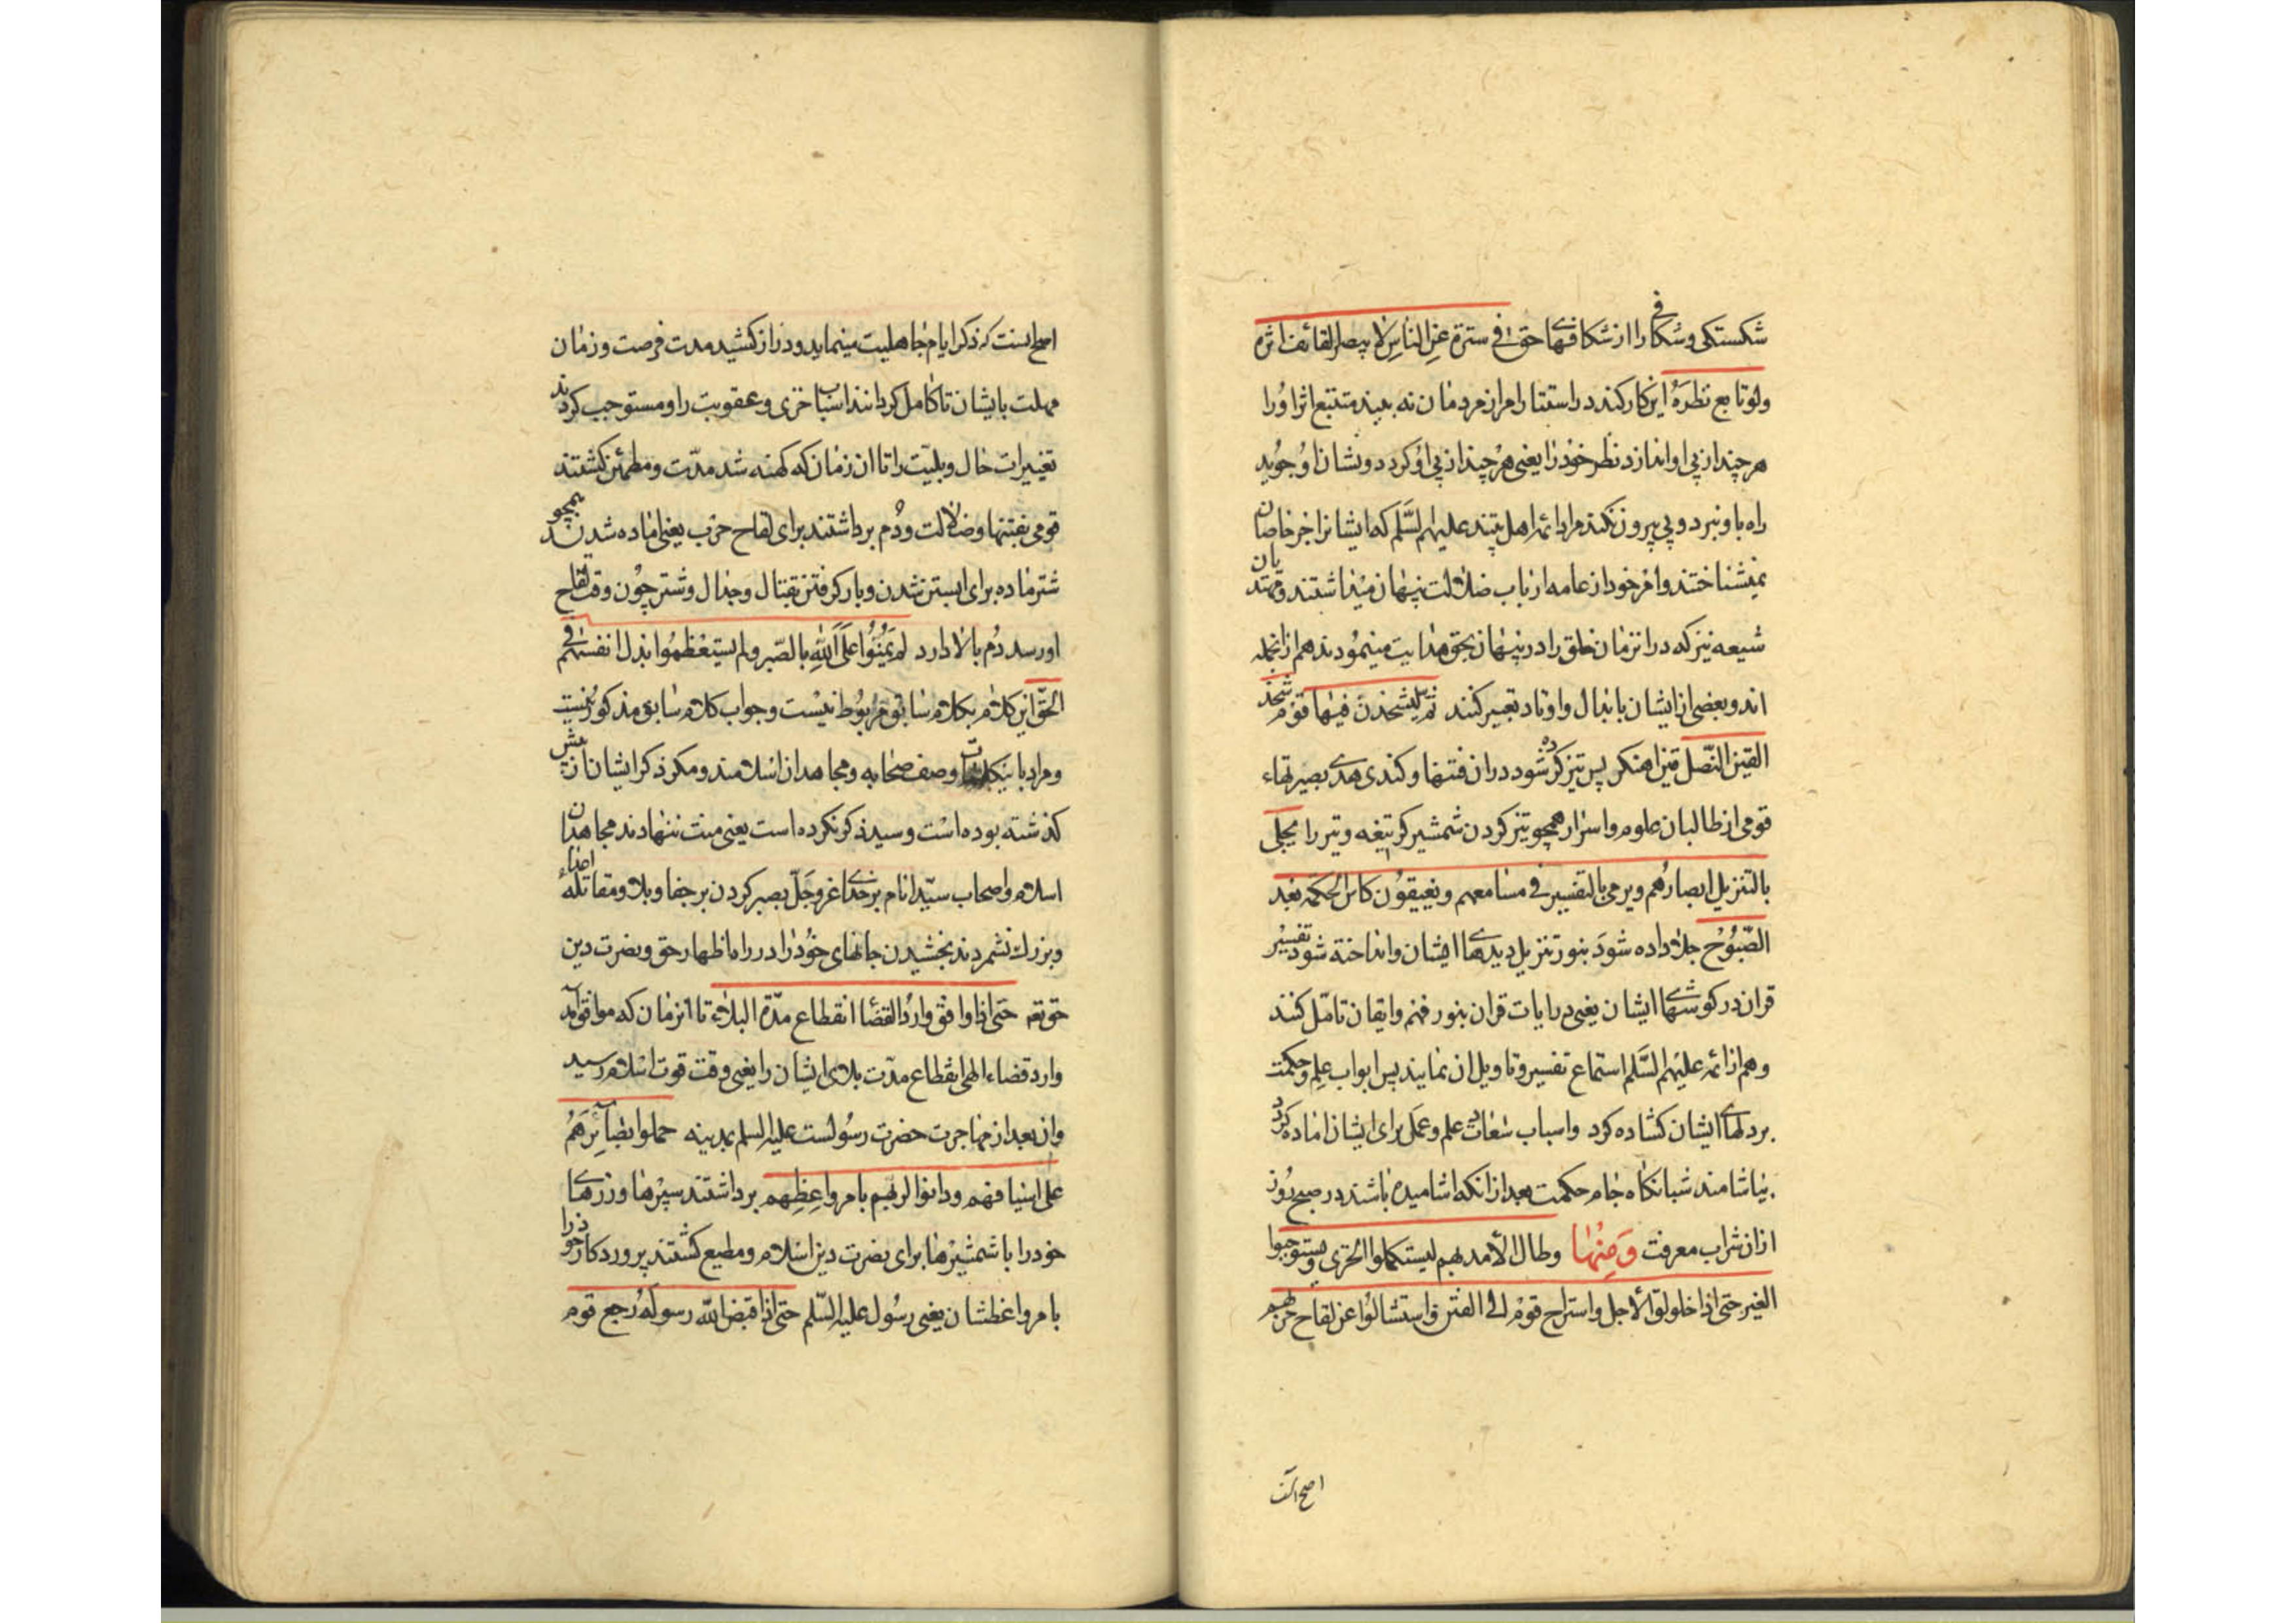 شکستکی و شکافی را از شکافهای حق فی سترة عن الناس لا یبصر القائف اثره
ولو تابع نظره این کار کند در استتار امر از مردمان نه بیند متتبع اثر او را
هر چند از پی او اندازد نظر خود را یعنی هر چند از پی او کردد و نشان او جوید
راه باو نبرد و پی بیرون نکند مراد ائمه اهل بیتند علیهم السلم که ایشانرا جز خاصان
نمیشناختند و امر خود از عامه ارباب ضلالت پنهان میداشتند و مهتدیان
شیعه نیز که در انزمان خلق را در پنهان بحق هدایت مینمودند هم از انجمله
اند و بعضی از ایشان بابدال و اوتاد تعبیر کنند ثم لیشحذن فیها قوم شحذ
القین النصل قین اهنکر پس تیز کرده شود در ان فتنها و کندی هدی بصیرتهاء
قومی از طالبان علوم و اسرار همچو تیز کردن شمشیر کر تیغه و تیر را یجلی
بالتنزیل ابصارهم ویرمی بالتفسیر فی مسامعهم ویغبقون کاس الحکمة بعد
الصبوح جلا داده شود بنور تنزیل دیدهای ایشان و انداخته شود تفسیر
قران در کوشهای ایشان یعنی در ایات قران بنور فهم و ایقان تامل کنند
و هم از ائمه علیهم السلم استماع تفسیر و تاویل ان نمایند پس ابواب علم و حکمت
بر دلهای ایشان کشاده کرد و اسباب سعادت علم و عمل برای ایشان اماده کردد
بیاشامند شبانکاه جام حکمت بعد از انکه اشامیده باشند در صبح روز
از ان شراب معرفت ومنها وطال الأمد بهم لیستکملوا الخزی ویستوجبوا
الغیر حتی اذا اخلولق الأجل واستراح قوم الی الفتن واستشالوا عن لقاح حربهم
اصح انست
اصح انست که ذکر ایام جاهلیت مینماید و دراز کشید مدت فرصت و زمان
مهلت بایشان تا کامل کردانند اسباب خزی و عقوبت را و مستوجب کردند
تغییرات حال و بلیت را تا ان زمان که کهنه شد مدت و مطمئن کشتند
قومی بفتنها و ضلالت و دم برداشتند برای لقاح حرب یعنی اماده شدند همچو
شتر ماده برای ابستن شدن و بار کرفتن بقتال و جدال و شتر چون وقت لقاح
او رسد دم بالا دارد لم یمنوا علی الله بالصبر ولم یستعظموا بذل انفسهم فی
الحق این کلام بکلام سابق مربوط نیست و جواب کلام سابق مذکور نیست
و مراد باین کلمات وصف صحابه و مجاهدان اسلامند و مکر ذکر ایشان از پیش
کذشته بوده است و سید ذکر نکرده است یعنی منت ننهادند مجاهدان
اسلام و اصحاب سید انام بر خدای عزوجل بصبر کردن بر جفا و بلا و مقاتله اعداء
و بزرك نشمردند بخشیدن جانهای خود را در راه اظهار حق و نصرت دین
حق تعه حتی اذا وافق وارد القضاء انقطاع مدة البلاء تا انزمان که موافق امد
وارد قضاء الهی انقطاع مدت بلای ایشان را یعنی وقت قوت اسلام رسید
و ان بعد از مهاجرت حضرت رسولست علیه السلم بمدینه حملوا بصائرهم
علی اسیافهم ودانوا لربهم بامر واعظهم برداشتند سپرها و زرههای
خود را با شمشیرها برای نصرت دین اسلام و مطیع کشتند پروردکار خود را
بامر واعظشان یعنی رسول علیه السلم حتی اذا قبض الله رسوله رجع قوم